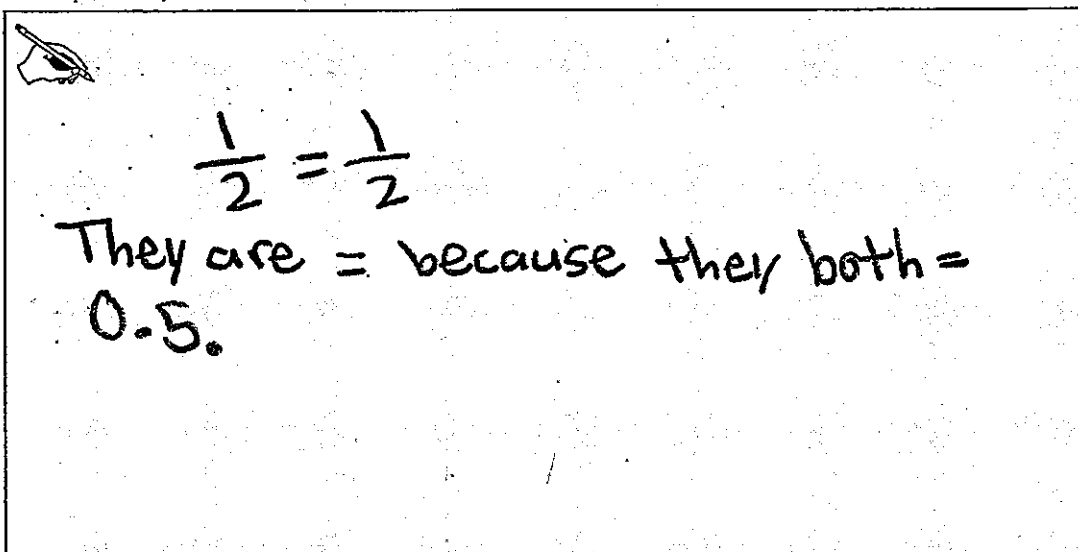 1/2 = 1/2
They are = because they both =
0.5.